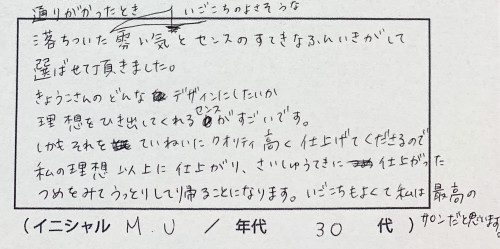 通りがかったとき いごこちのよさそうな
落ちついた雰い気とセンスのすてきなふんいきがして
選ばせて頂きました。
きょうこさんのどんなデザインにしたいか
理想をひき出してくれるセンスがすごいです。
しかもそれをていねいにクオリティ高く仕上げてくださるので
私の理想以上に仕上がり、さいしゅうてきに仕上がった
つめをみてうっとりして帰ることになります。いごこちもよくて私は最高の
サロンだと思います。
(イニシャル M.U / 年代 30 代)